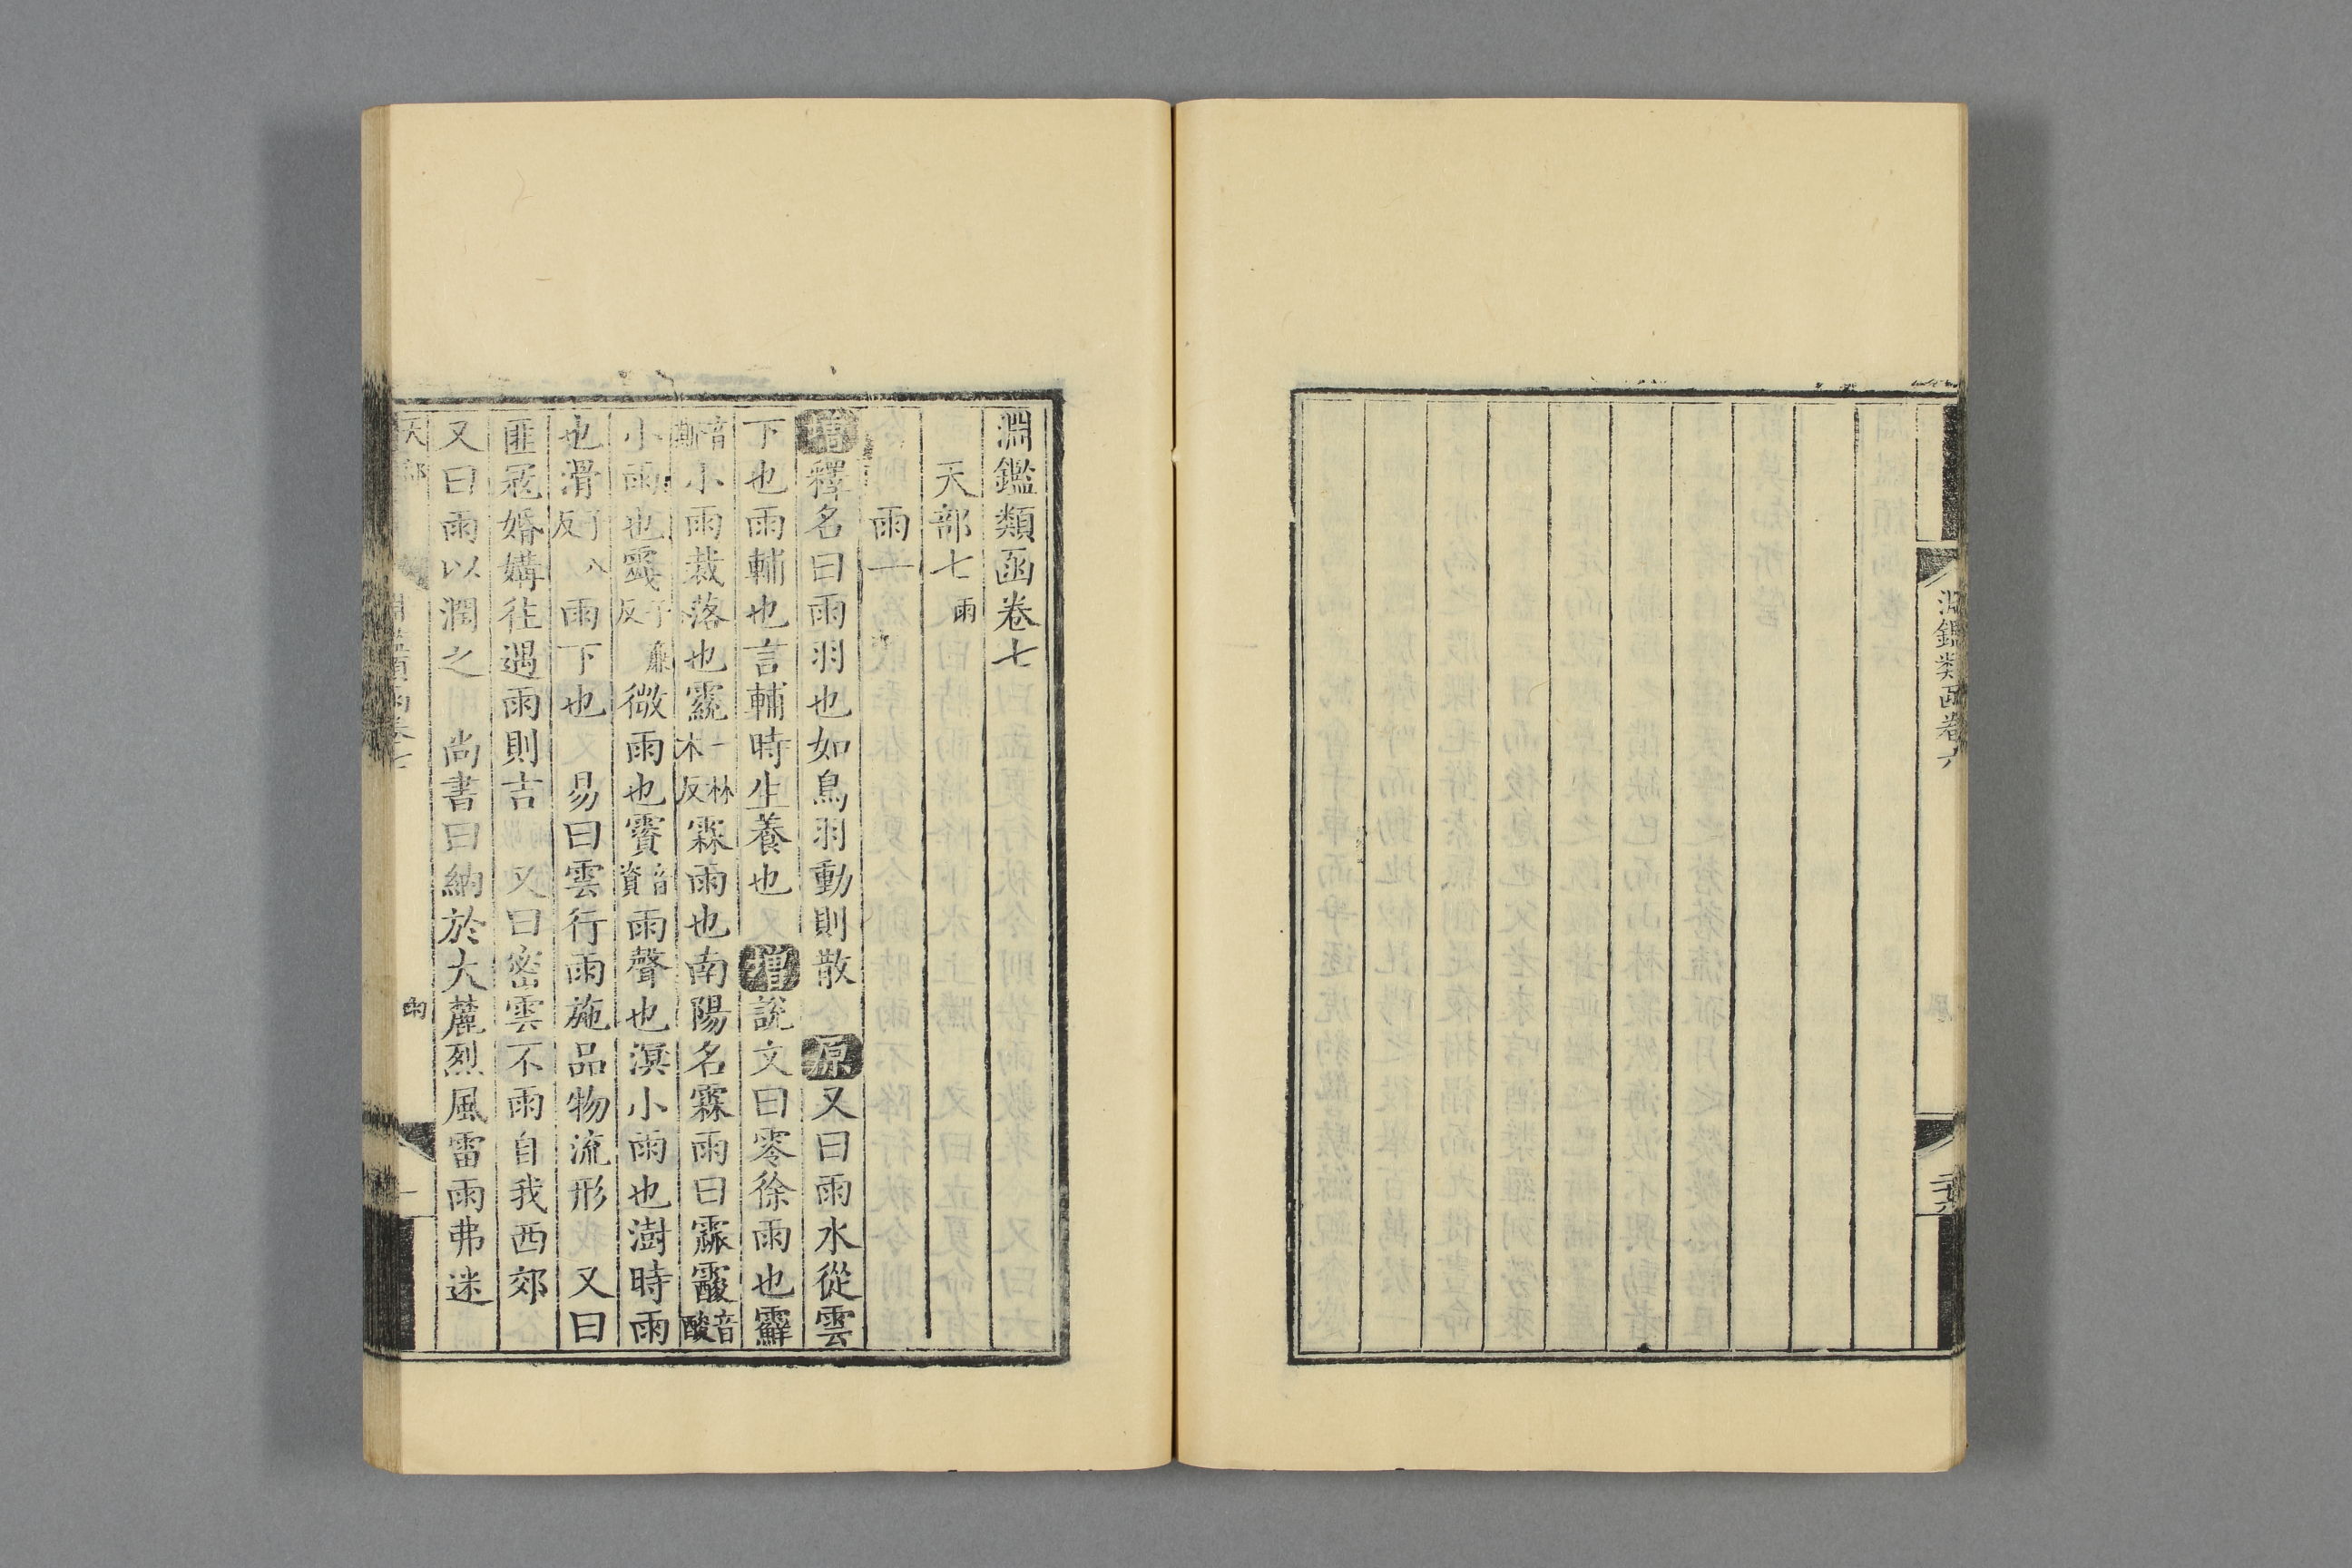 淵鑑類函卷六
風
淵鑑類函卷七
天部七 雨
雨一
增釋名曰雨羽也如鳥羽動則散 原又曰雨水從雲
下也雨輔也言輔時生養也 增說文曰零徐雨也霹
音斯小雨裁落也霃一林木反霖雨也南陽名霖雨曰霢霰音酸
小雨也霎子廉反微雨也𩆂音資雨聲也溟小雨也澍時雨
也滑子八反雨下也 易曰雲行雨施品物流形 又曰
匪寇婚媾往遇雨則吉 又曰密雲不雨自我西郊
又曰雨以潤之 尚書曰納於大麓烈風雷雨弗迷
天部
淵鑑類函卷七
雨
一